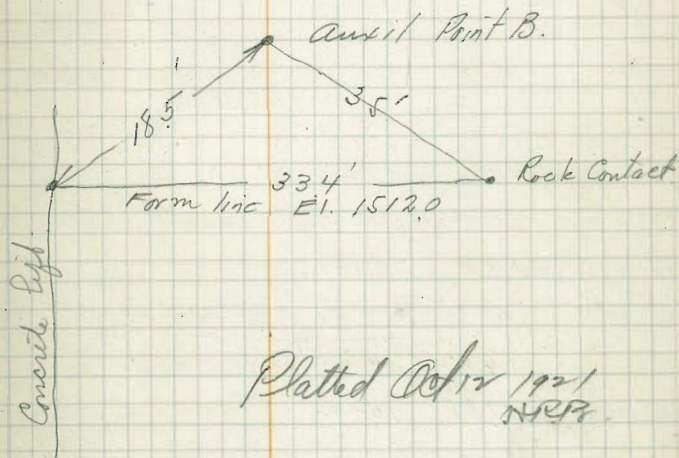 Auxil Point B.
18.5'
35'
Rock Contact
33.4'
Form line El. 1512.0
Concrete
Platted Oct 12 1921